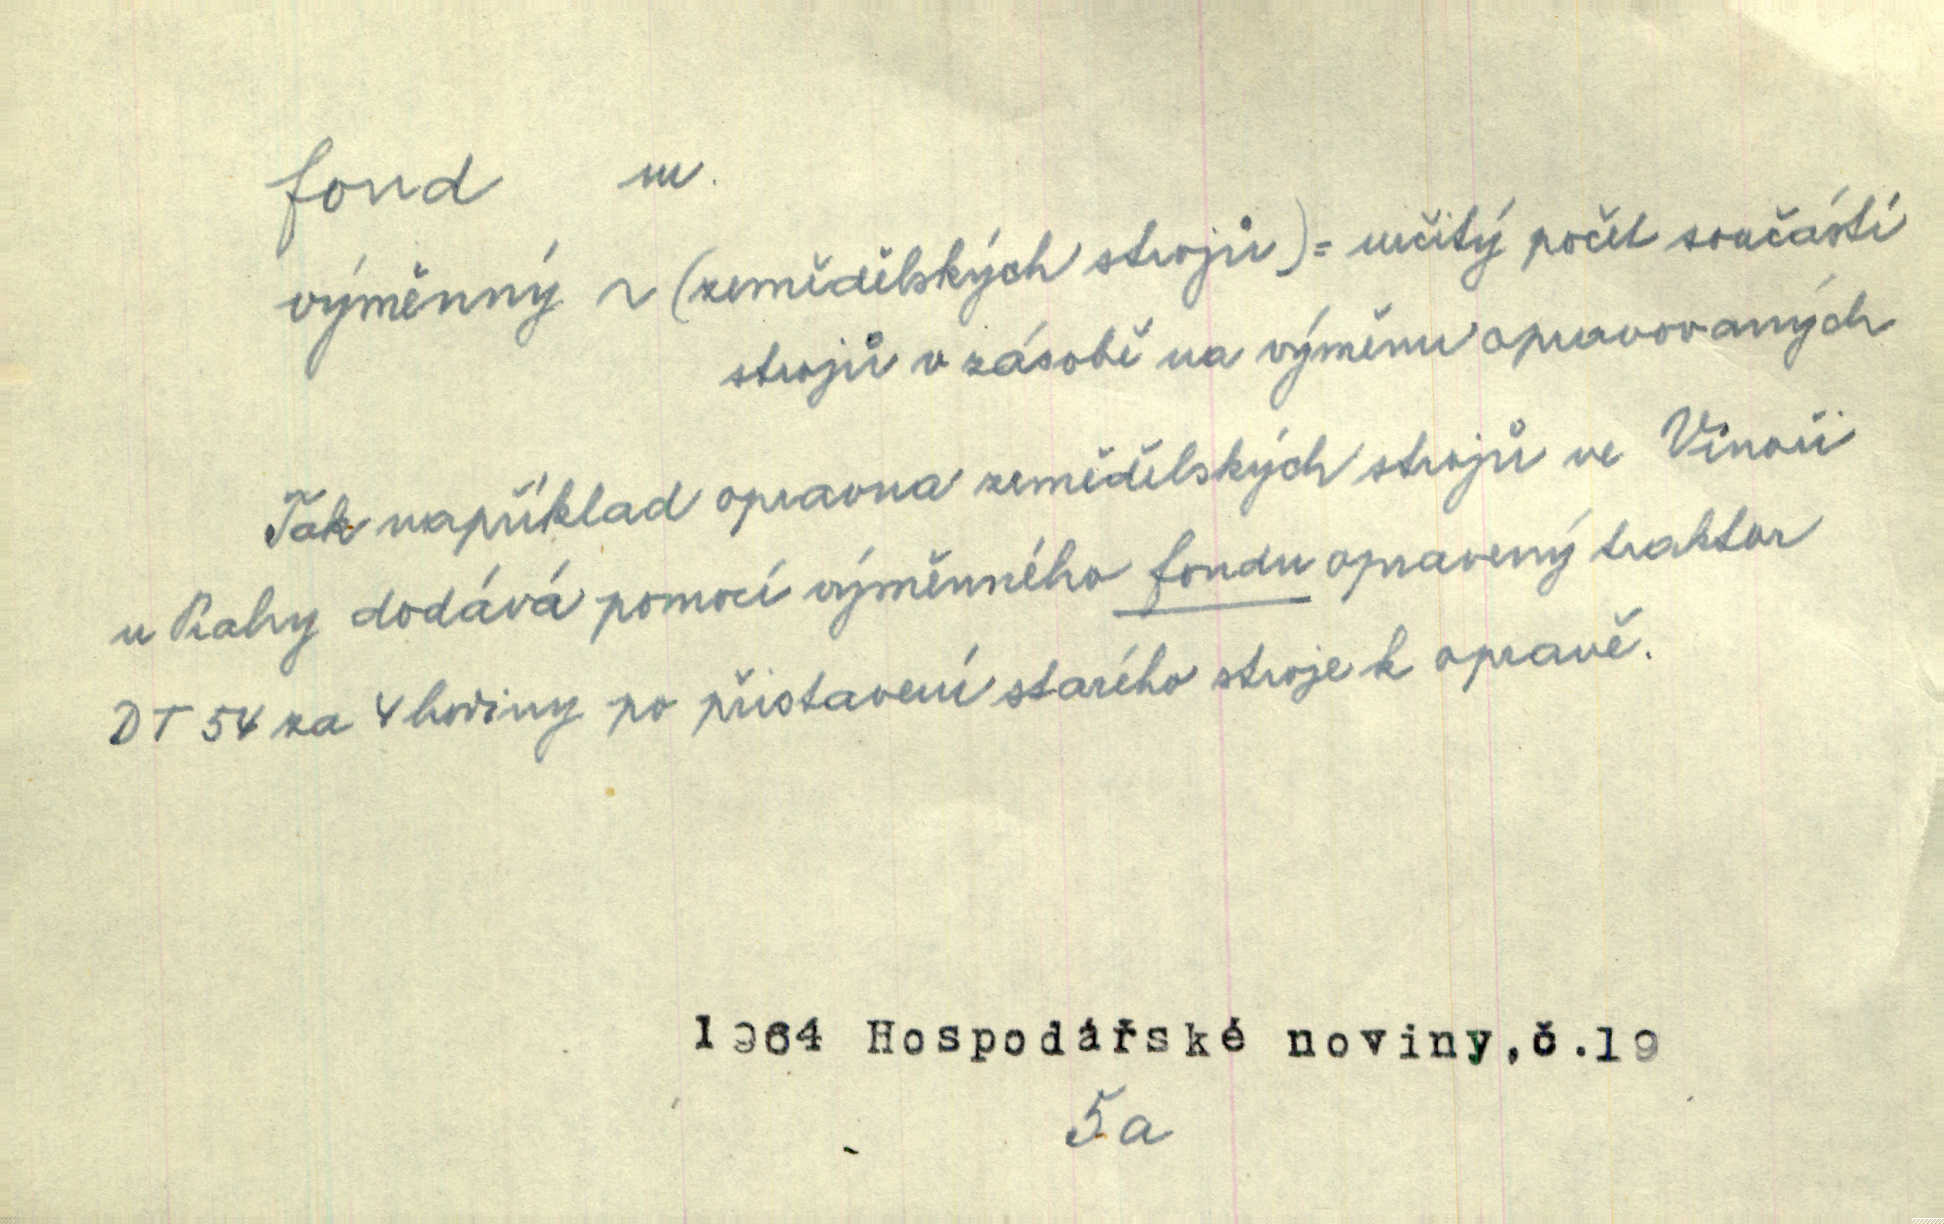 fond m.
výměnný ~ (zemědělských strojů) = určitý počet součástí
strojů v zásobě na výměnu opravovaných
Tak například opravna zemědělských strojů ve Vinoři
u Prahy dodává pomocí výměnného fondu opravený traktor
DT 54 za 4 hodiny po přistavení starého stroje k opravě.
1964 Hospodářské noviny,č.19
5a